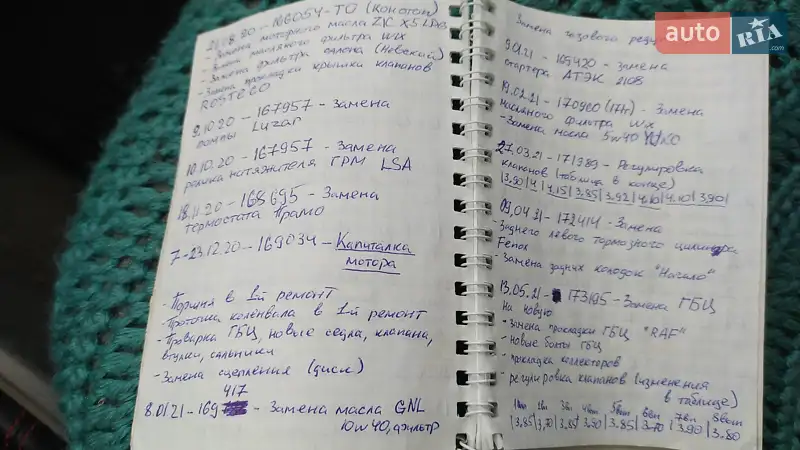 21.08.20 - 166054 - ТО (Конотоп)
- Замена моторного масла ZIC X5 LPG
- Замена масляного фильтра WIX
- Замена фильтра салона (Невский)
- Замена прокладки крышки клапанов
ROSTECO
9.10.20 - 167957 - Замена
помпы Luzar
10.10.20 - 167957 - Замена
ролика натяжителя ГРМ LSA
18.11.20 - 168695 - Замена
термостата Прамо
7-23.12.20 - 169034 - Капиталка
мотора
- Поршня в 1й ремонт
- Проточка коленвала в 1й ремонт
- Проварка ГБЦ, новые седла, клапана,
втулки, сальники
- Замена сцепления (диск)
417
8.01.21 - 169 - Замена масла GNL
10w40, фильтр
Замена газового
9.01.21 - 169420 - замена
стартера АТЭК 2108
19.02.21 - 170960 - Замена
масляного фильтра WIX
- Замена масла 5w40
27.03.21 - 171989 - Регулировка
клапанов (таблица в конце)
|3.90|4|4.15|3.85|3.92|4.10|4.10|3.90|
09.04.21 - 172414 - Замена
- Заднего левого тормозного цилиндра
Fenox
- Замена задних колодок "Начало"
13.05.21 - 173195 - Замена ГБЦ
на новую
- замена прокладки ГБЦ "RAF"
- новые болты ГБЦ
- прокладка коллекторов
- регулировка клапанов (изменения
в таблице)
1вп 2вп 3вп 4вп 5вп 6вп 7вп 8вп
|3.85|3.70|3.85|3.90|3.85|3.70|3.90|3.80
auto RIA
.com